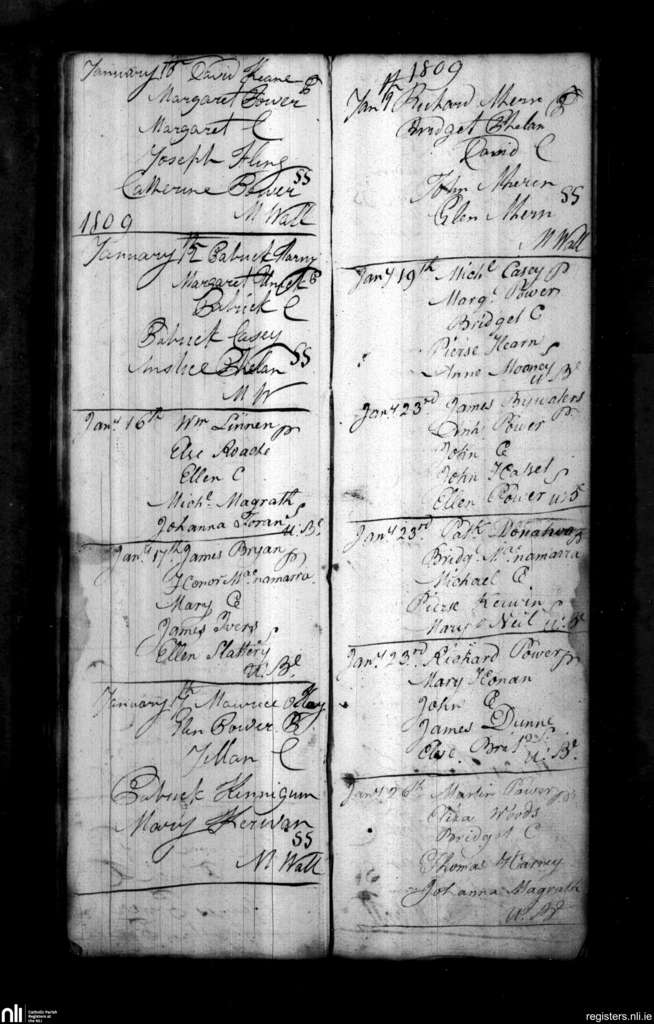 January David Keane P
Margaret Power P
Margaret C
Joseph Fling
Catherine Power SS
M Wall
1809
January 12 Patrick Harny
Margaret P
Patrick C
Patrick Casey
Phelan SS
M W
Jany 16th Wm Linnen P
Else Roade
Ellen C
Michl Magrath
Johanna Foran S
Jany 17th James Bryan P
Honor Macnamarra
Mary C
James Ivers
Ellen Slattery S
January Maurice Hay
Elen Power P
C
Patrick Kinnigum
Mary Kerwan
SS
M Wall
1809
Jany Richard Ahern P
Bridget Phelan
David C
John Aheren
Elen Ahern SS
M Wall
Jany 19th Michl Casey P
Margt Power
Bridget C
Pierse Hearn
Anne Mooney S
Jany 23rd James Bywaters
Power P
John C
John Halsel
Ellen Power S
Jany 23rd Patk Donahoo P
Bridgt Macnamarra
Michael C
Pierse Kerwin
Mary Neil S
Jany 23rd Richard Power P
Mary Honan
John C
James Dunne
Else
Jany 26th Martin Power P
Eliza Woods
Bridget C
Thomas Harney
Johanna Magrath
nli Catholic Parish
Registers at
the NLI
registers.nli.ie